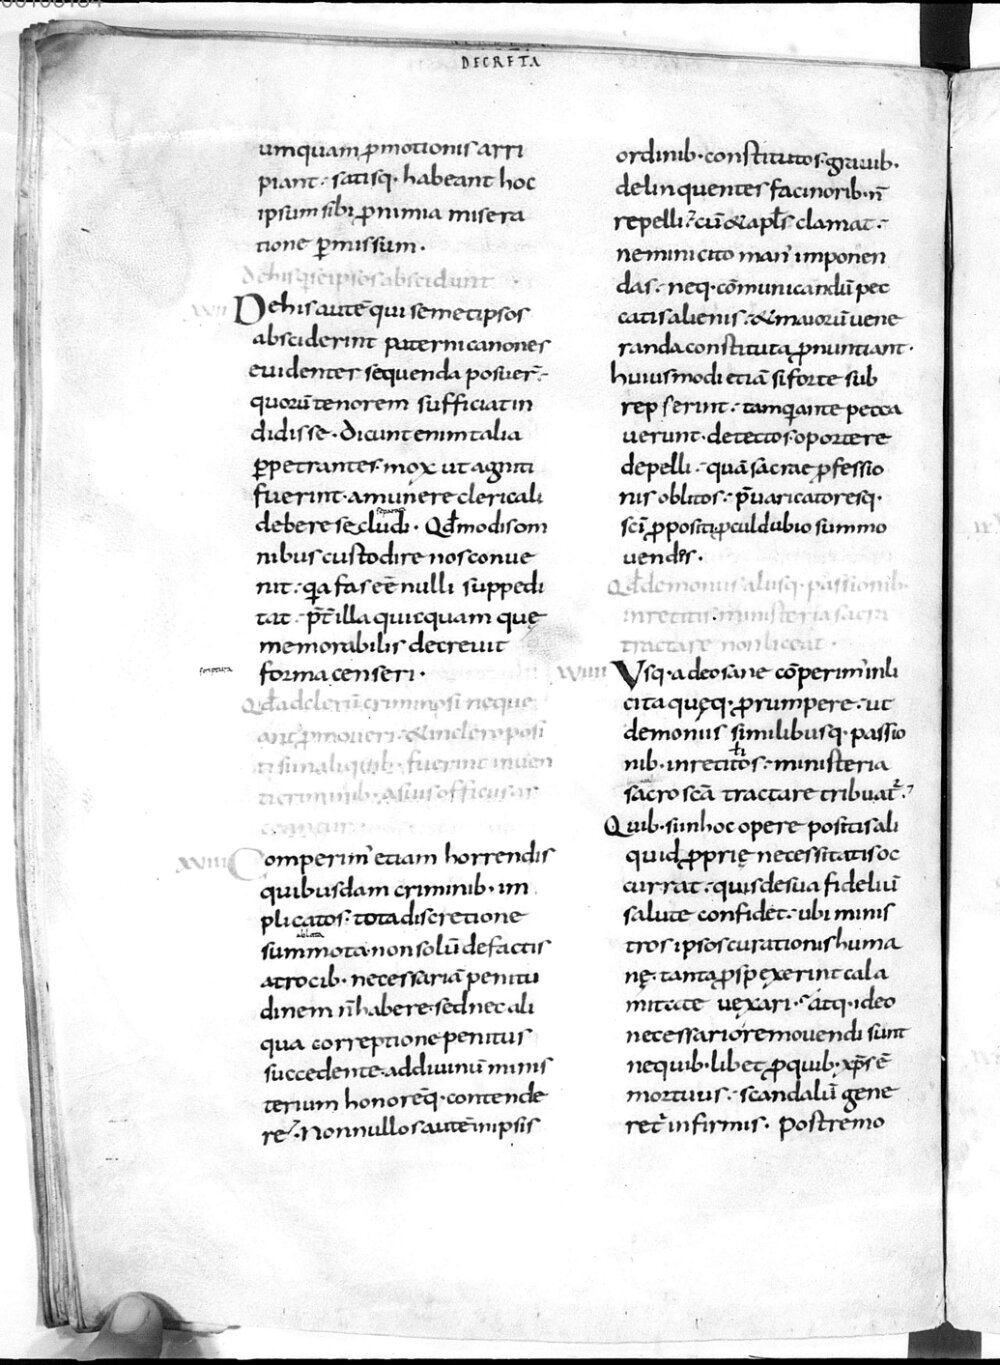 DECRETA
umquam ꝓmotionis arri
piant; satisq· habeant hoc
ipsum sibi ꝓ nimia misera
tione ꝑmissum·
De his q̄ se ipsos abscidunt
XVII De his autē qui semetipsos
absciderint paterni canones
evidenter sequenda posuer̄;
quorū tenorem sufficiat in
didisse· Dicunt enim talia
ꝑpetrantes· mox ut agniti
fuerint· a munere clericali
separari
debere secludi· Qd̄ modis om
nibus custodire nos conve
nit; q̄a fas eē nulli suppedi
tat· p̄t illa quicquam quę
memorabilis decrevit
scriptura
forma censeri·
Qd̄ ad clerū criminosi neque
ant ꝓmoveri; & in clero posi
ti si in aliquib· fuerint inven
ti criminib· a suis officiis ar
ceantur
XVIII Comperim' etiam horrendis
quibusdam criminib· im
plicatos; tota discretione
ablata
summota· non solū de factis
atrocib· necessariā penitu
dinem n̄ habere· sed nec ali
qua correptione penitus
succedente· ad divinū minis
terium honorēq· contende
re; Nonnullos autē in ipsis
ordinib· constitutos· gravib·
delinquentes facinorib· n̄
repelli; cū & apl̄s clamat;
nemini cito man' imponen
das; neq· cōmunicandū pec
catis alienis; & maiorū vene
randa constituta ꝓnuntiant·
huiusmodi etiā si forte sub
repserint; tam q̄ ante pecca
verunt· detectos oportere
depelli· quā sacrae ꝓfessio
nis oblitos; p̄varicatoresq·
sc̄i ꝓpositi ꝓcul dubio summo
vendos·
Qd̄ demoniis aliisq· passionib·
inretitis· ministeria sacra
tractare non liceat·
XVIIII Usq· adeo sane cōperim' inli
cita quęq· ꝓrumpere; ut
demoniis similibusq· passio
nib· inretitos; ministeria
sacro sc̄a tractare tribuat̄;
Quib· si in hoc opere positis ali
quid ꝓprię necessitatis oc
currat; quis de sua fideliū
salute confidet; ubi minis
tros ipsos curationis huma
nę· tanta ꝓspexerint cala
mitate vexari· atq· ideo
necessario removendi sunt
ne quib·libet ꝓ quib· xp̄s ē
mortuus; scandalū gene
ret̄ infirmis· Postremo